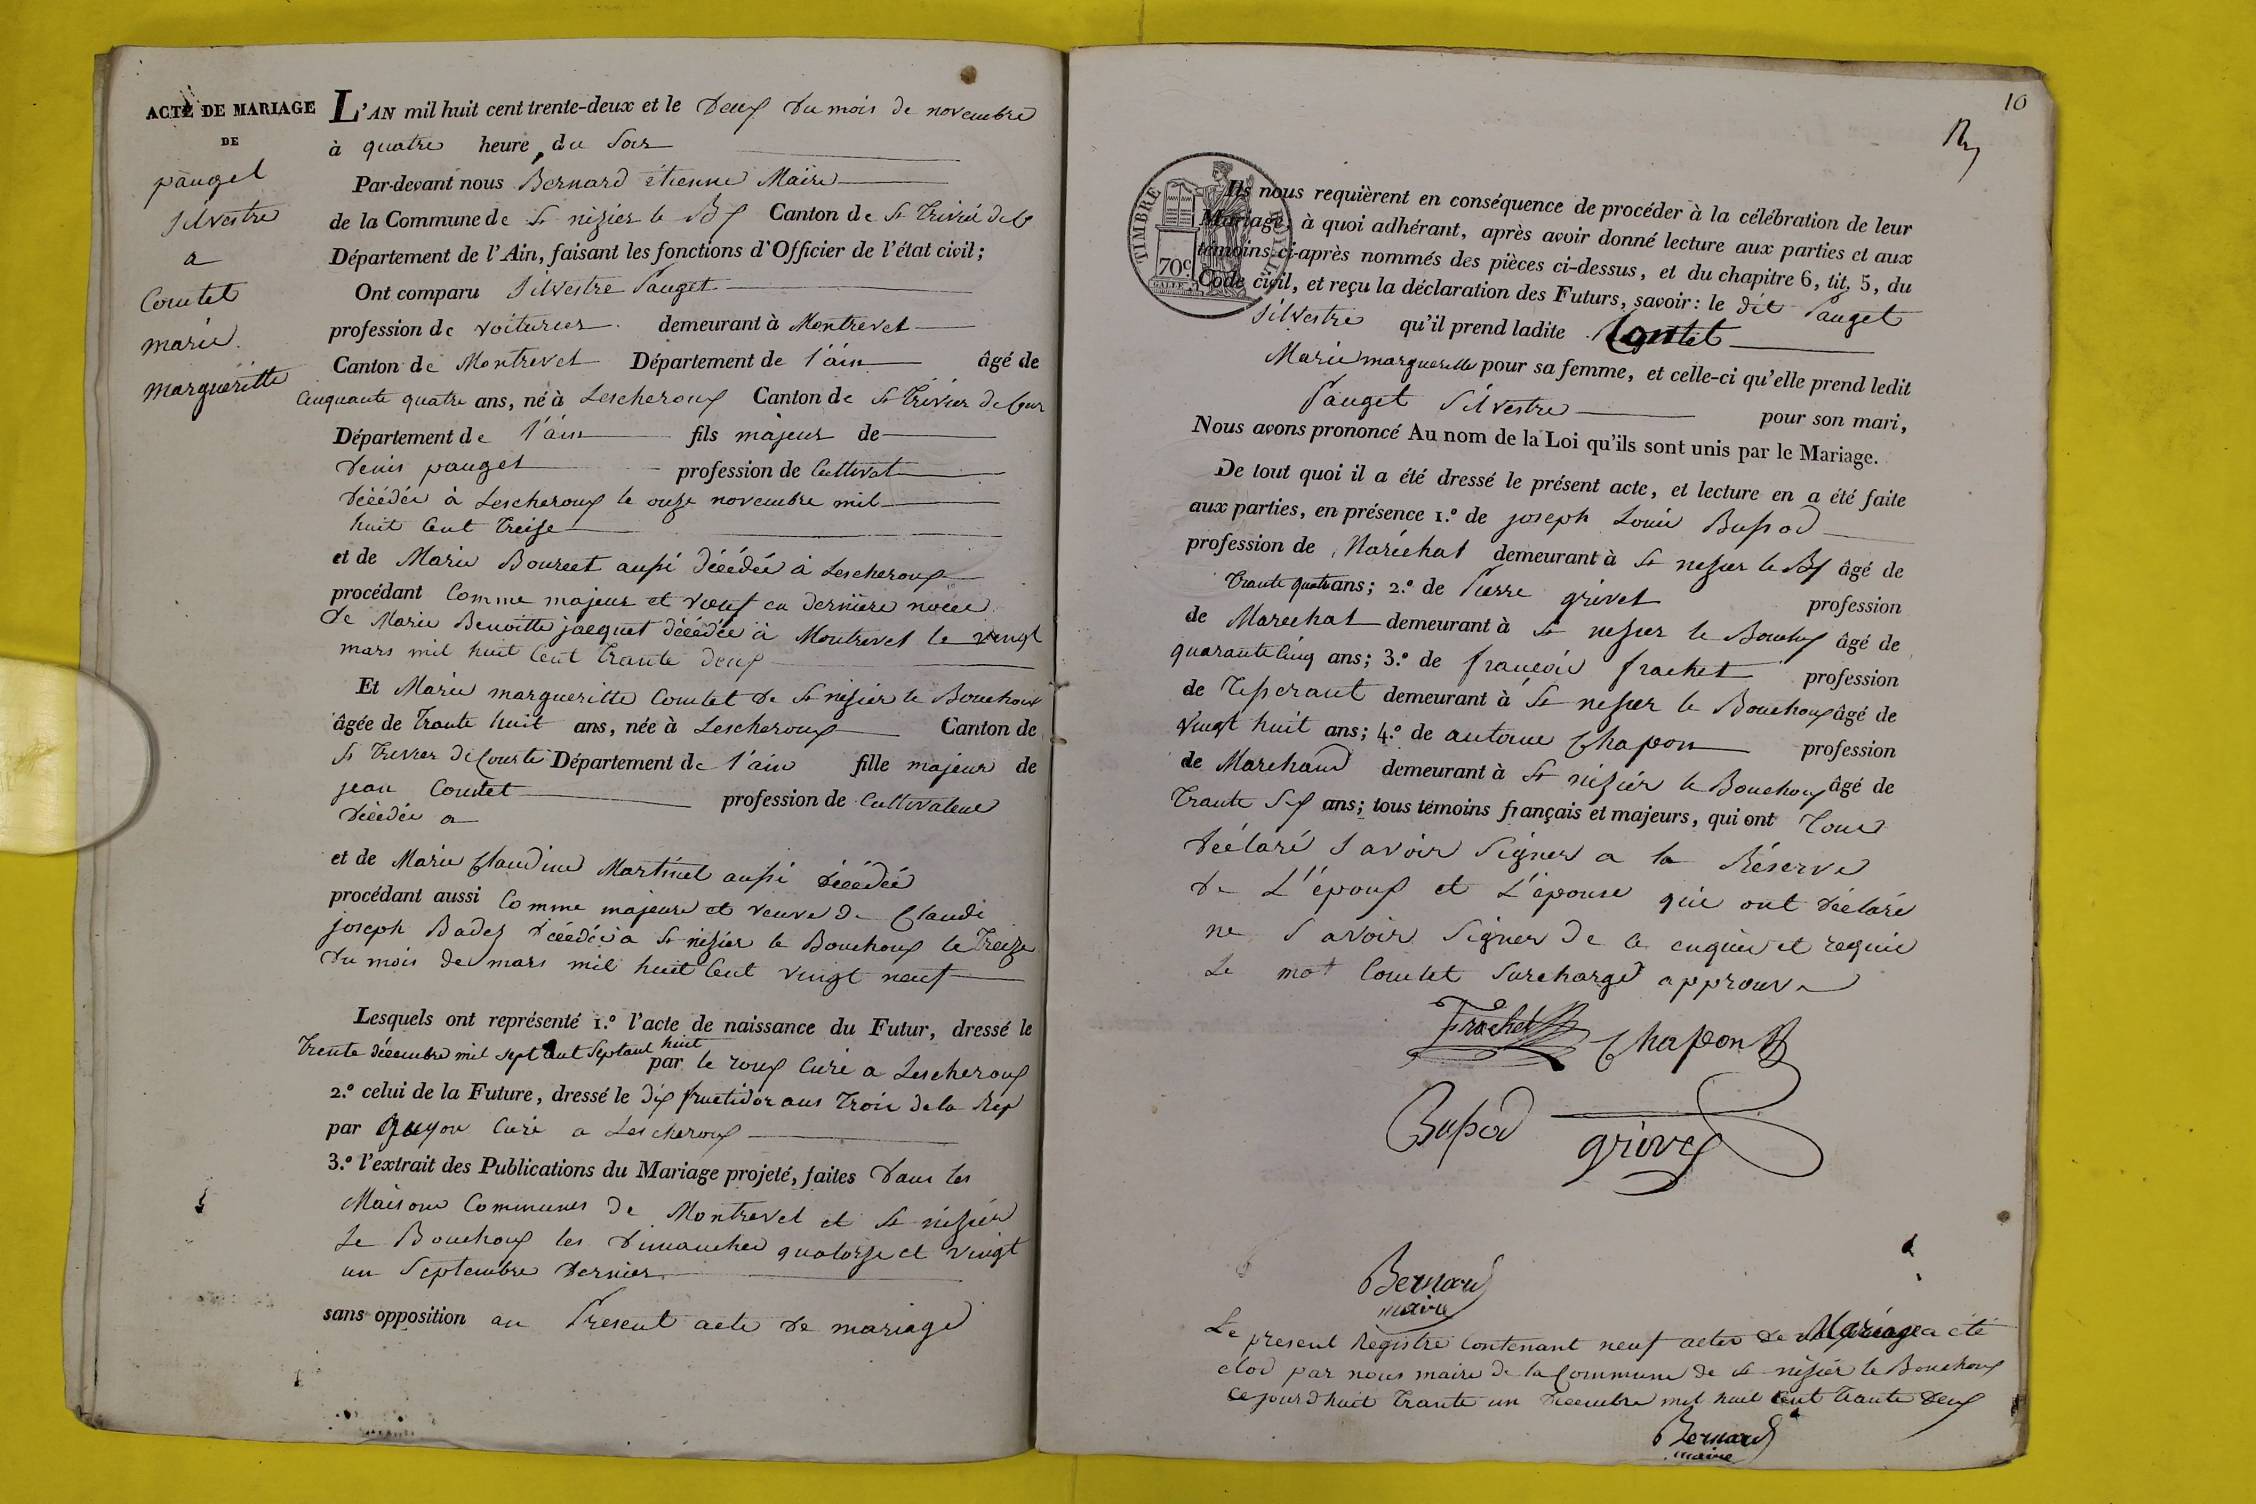 ACTE DE MARIAGE
DE
pauget
Silvestre
a
Comtet
marie
margueritte
L'AN mil huit cent trente-deux et le deux du mois de novembre
à quatre heure du Soir
Par-devant nous Bernard étienne Maire
de la Commune de St nizier le Bx Canton de St Trivié de C
Département de l'Ain, faisant les fonctions d'Officier de l'état civil;
Ont comparu Silvestre Pauget
profession de voiturier demeurant à Montrevel
Canton de Montrevel Département de l'ain âgé de
Cinquante quatre ans, né à Lescheroux Canton de St Trivier de Cour
Département de l'ain fils majeur de
Denis pauget profession de Cultivat
décédée à Lescheroux le onze novembre mil
huit Cent treize
et de Marie Bourcet aussi décédée à Lescheroux
procédant Comme majeur et vœuf en dernière noece
de Marie Benoitte jacquet décédée à Montrevel le vingt
mars mil huit Cent trante deux
Et Marie margueritte Comtet de St nizier le Bouchoux
âgée de trante huit ans, née à Lescheroux Canton de
St Trevier de Courte Département de l'ain fille majeur de
jean Comtet profession de Cultivateur
décédée a
et de Marie Claudine Martinet aussi décédée
procédant aussi Comme majeure et veuve de Claude
joseph Badez décédée a St nizier le Bouchoux le treize
du mois de mars mil huit Cent vingt neuf
Lesquels ont représenté 1.º l'acte de naissance du Futur, dressé le
Trente décembre mil sept Cent septant huit
par le roux Curé a Lescheroux
2.º celui de la Future, dressé le dix fructidor ans trois de la Rep
par Guyon Curé a Lescheroux
3.º l'extrait des Publications du Mariage projeté, faites dans les
Maisons Communes de Montrevel et St nizier
Le Bouchoux les dimanches quatorze et vingt
un Septembre dernier
sans opposition au Présent acte de mariage
10
TIMBRE
ROYAL
70c
Ils nous requièrent en conséquence de procéder à la célébration de leur
Mariage; à quoi adhérant, après avoir donné lecture aux parties et aux
témoins ci-après nommés des pièces ci-dessus, et du chapitre 6, tit. 5, du
Code civil, et reçu la déclaration des Futurs, savoir: le dit Pauget
Silvestre qu'il prend ladite Comtet
Marie margueritte pour sa femme, et celle-ci qu'elle prend ledit
Pauget Silvestre pour son mari,
Nous avons prononcé Au nom de la Loi qu'ils sont unis par le Mariage.
De tout quoi il a été dressé le présent acte, et lecture en a été faite
aux parties, en présence 1.º de joseph Louis Bussod
profession de Maréchal demeurant à St nesier le Bx âgé de
trante quatre ans; 2.º de Pierre grivet profession
de Marechal demeurant à St nesier le Bouchoux âgé de
quarante Cinq ans; 3.º de françois frachet profession
de Tisserant demeurant à St nesier le Bouchoux âgé de
vingt huit ans; 4.º de antoine Chapon profession
de Marchand demeurant à St nizier le Bouchoux âgé de
trante Six ans; tous témoins français et majeurs, qui ont tous
déclaré Savoir Signer a la Réserve
de L'époux et L'épouse qui ont déclaré
ne Savoir Signer de ce enquis et requis
Le mot Comtet Surchargé approuvé
Frachet Chapon
Bussod grivet
Bernard
maire
Le present Registre Contenant neuf actes de Mariage a été
clod par nous maire de la Commune de St nizier le Bouchoux
Ce jourdhuit trante un décembre mil huit Cent trante deux
Bernard
maire